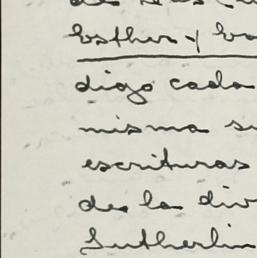 Esther y
digo cada
misma su
escrituras
de la div
Sutherlin